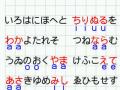 いろはにほへと ちりぬるを
i i u u
わかよたれそ つねならむ
a a a a
うゐのおくやま けふこえて
a a e e
あさきゆめみし ゑひもせす
a a i i